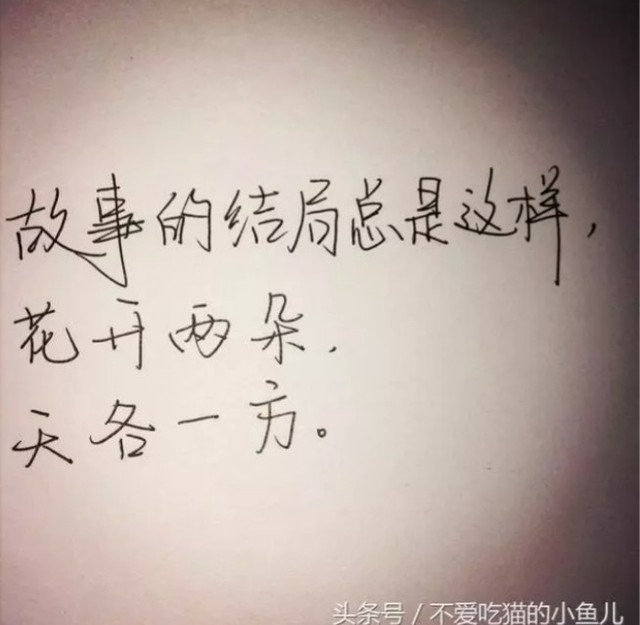 故事的结局总是这样，
花开两朵，
天各一方。
头条号 / 不爱吃猫的小鱼儿